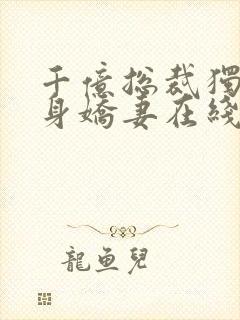 千億总裁獨
身嬌妻在綫
龍鱼兒